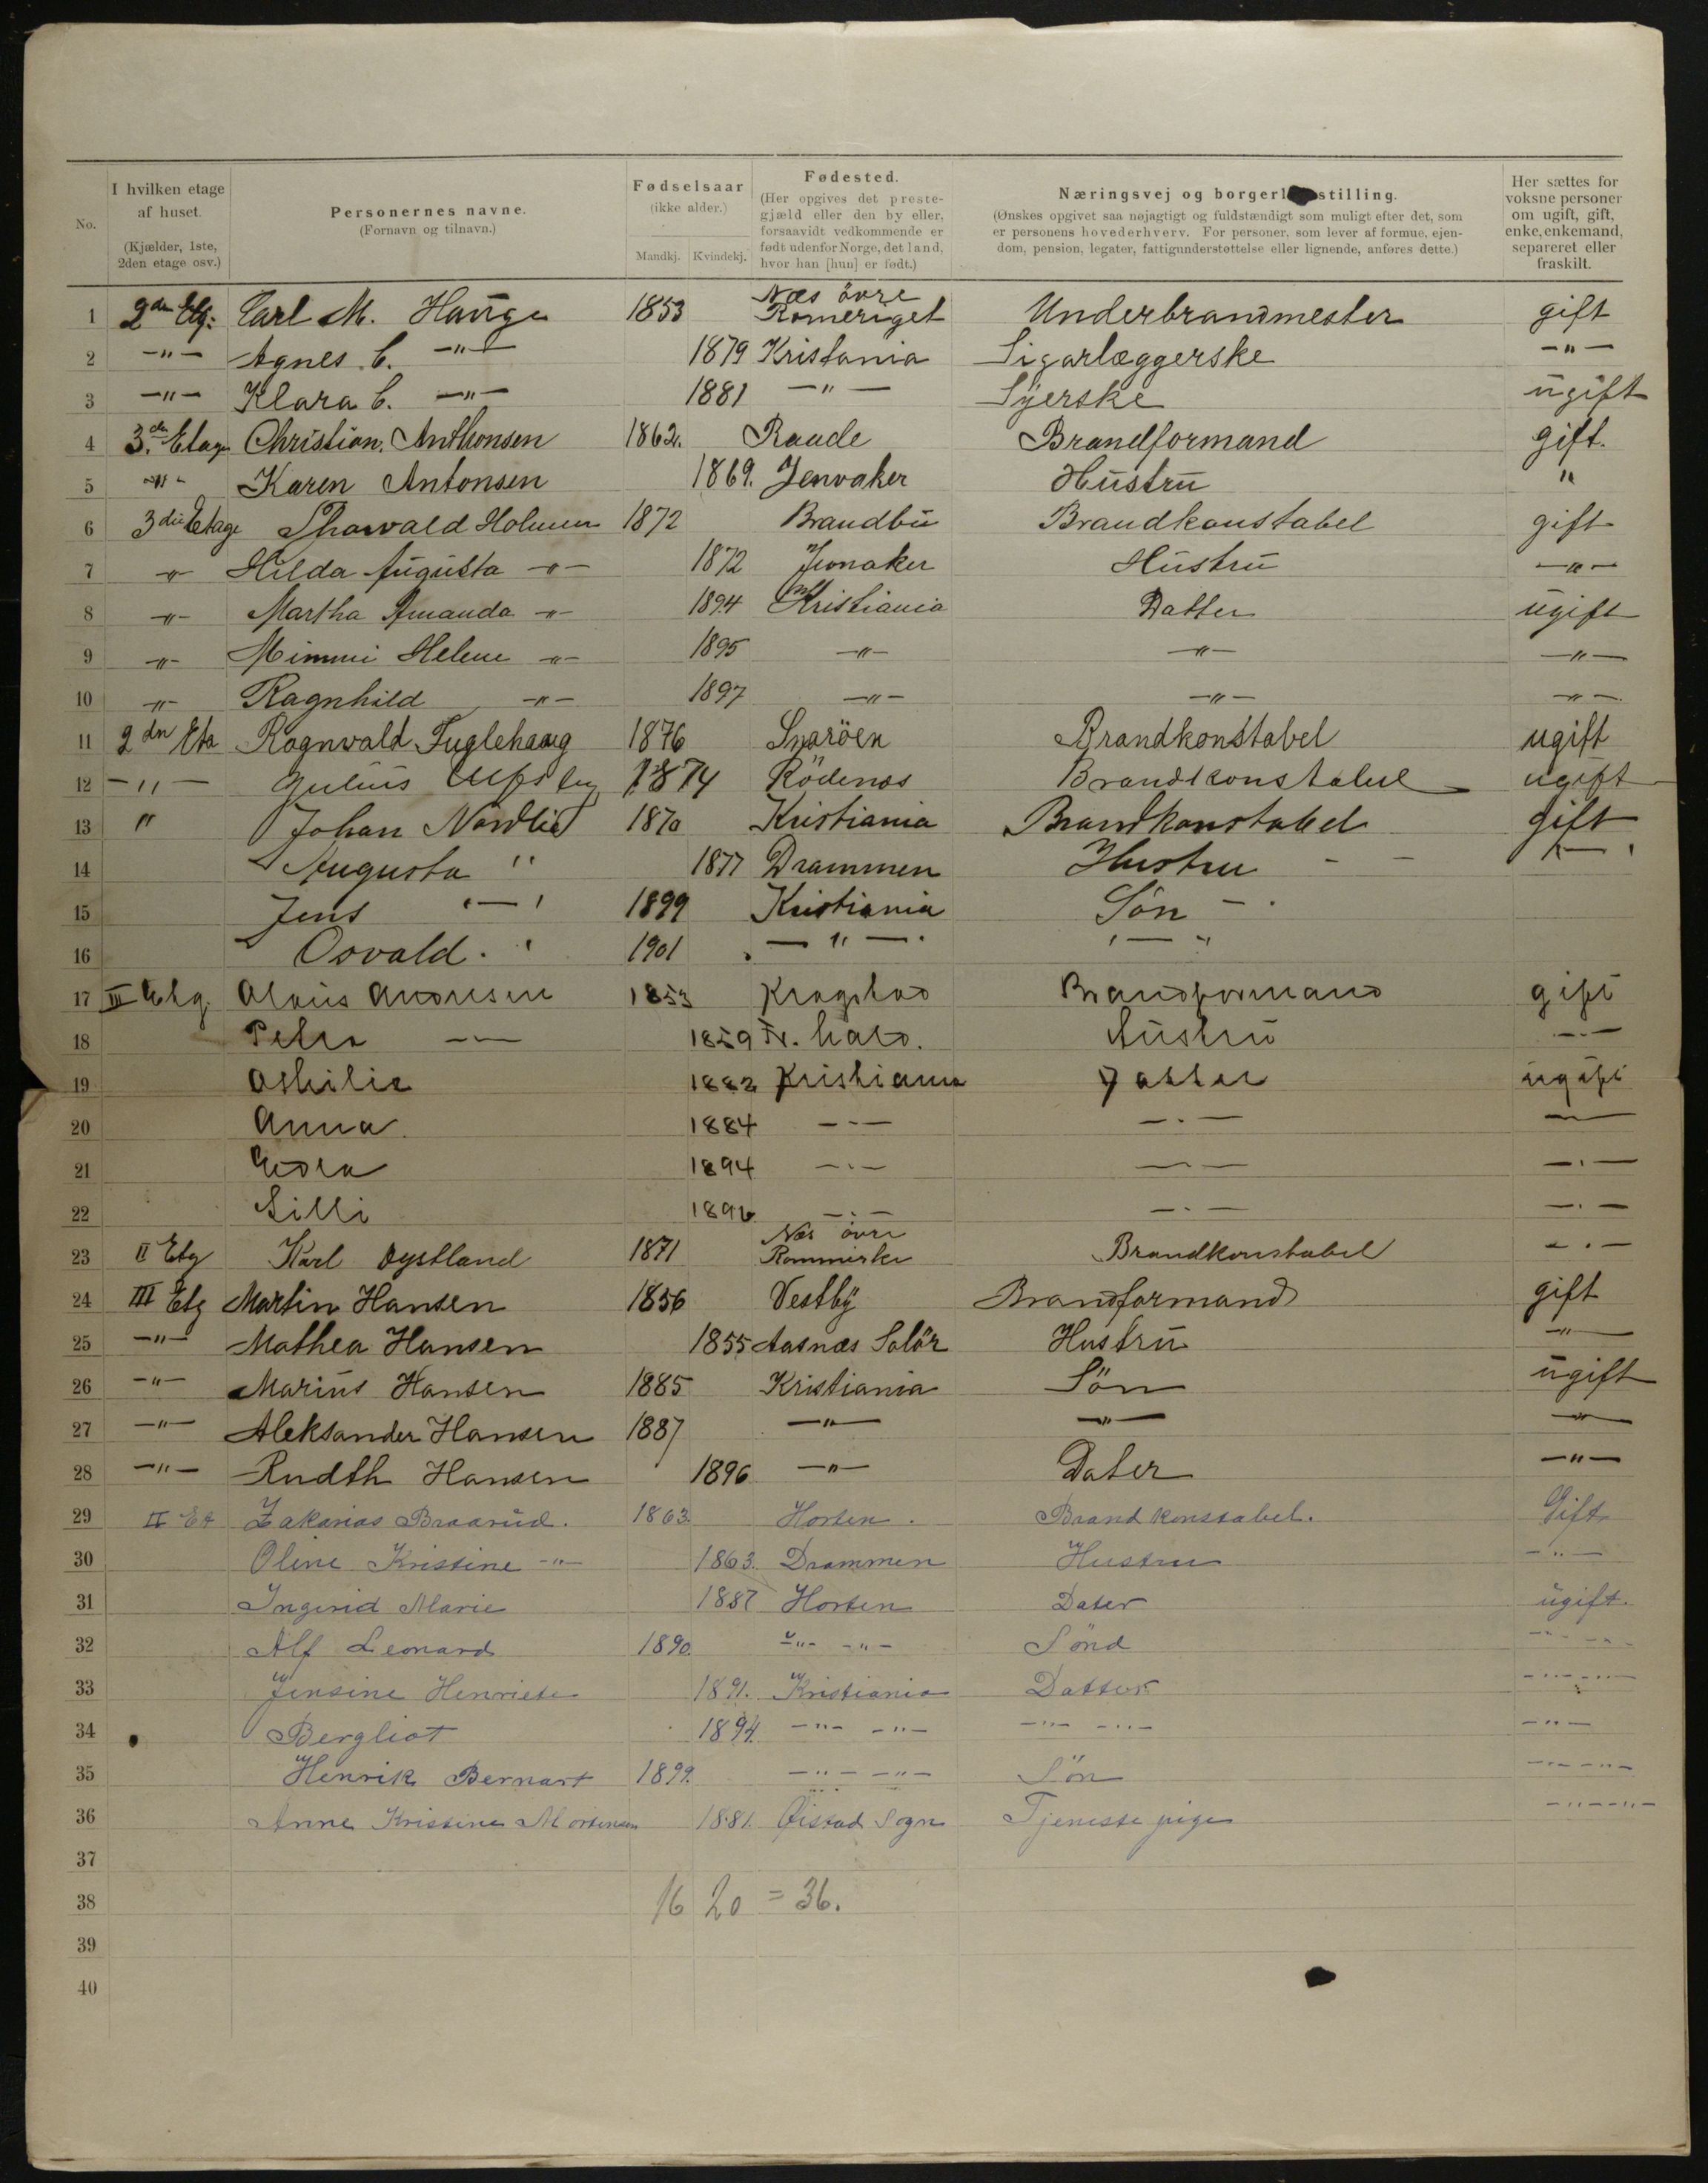 No.
I hvilken etage
af huset.
(Kjælder, 1ste,
2den etage osv.)
Personernes navne.
(Fornavn og tilnavn.)
Fødselsaar
(ikke alder.)
Mandkj. Kvindekj.
Fødested.
(Her opgives det preste-
gjæld eller den by eller,
forsaavidt vedkommende er
født udenfor Norge, det land,
hvor han [hun] er født.)
Næringsvej og borgerl stilling.
(Ønskes opgivet saa nøjagtigt og fuldstændigt som muligt efter det, som
er personens hovederhverv. For personer, som lever af formue, ejen-
dom, pension, legater, fattigunderstøttelse eller lignende, anføres dette.)
Her sættes for
voksne personer
om ugift, gift,
enke, enkemand,
separeret eller
fraskilt.
1 2den Etg: Carl M. Hauge 1853 Næs övre Romeriget Underbrandmester gift
2 -"- Agnes C. -"- 1879 Kristania Sigarlæggerske -"-
3 -"- Klara C. -"- 1881 -"- Syerske ugift
4 3.de Etage Christian. Anthonsen 1862. Raade Brandformand gift.
5 -"- Karen Antonsen 1869. Jevnaker Hustru "
6 3die Etage Thorvald Holmen 1872 Brandbu Brandkonstabel gift
7 -"- Hilda Augusta -"- 1872 Jevnaker Hustru -"-
8 -"- Martha Amanda -"- 1894 Kristiania Datter ugift
9 -"- Mimmi Helene -"- 1895 -"- -"- -"-
10 -"- Ragnhild -"- 1897 -"- -"- -"-
11 2dn Eta Ragnvald Fuglehaug 1876 Snaröen Brandkonstabel ugift
12 -"- Julius 1874 Rödenæs Brandkonstabel ugift
13 " Johan Nordlie 1870 Kristiania Brandkonstabel gift
14 Augusta " 1877 Drammen Hustru - - "-"
15 Jens "-" 1899 Kristiania Sön -
16 Osvald. " 1901 -"- "-"
17 III Etg. Alavis Andresen 1853 Kragstad Brandformand gift
18 Petra -"- 1859 Fr. hald. Hustru -"-
19 Othilie 1882 Kristiania Datter ugift
20 Anna 1884 -"- -"- -"-
21 1894 -"- -"- -"-
22 Lilli 1896 -"- -"- -"-
23 II Etg Karl Oystland 1871 Næs övre Rommerike Brandkonstabel -"-
24 III Etg Martin Hansen 1856 Vestby Brandformand gift
25 -"- Mathea Hansen 1855 Aasnæs Solör Hustru -"-
26 -"- Marius Hansen 1885 Kristiania Sön ugift
27 -"- Aleksander Hansen 1887 -"- -"- -"-
28 -"- Rudth Hansen 1896 -"- Dater -"-
29 II Et Zakarias Braarud. 1863. Horten. Brandkonstabel. Gift
30 Oline Kristine -"- 1863. Drammen Hustru -"-
31 Ingerid Marie 1887 Horten Dater ugift.
32 Alf Leonard 1890. -"- -"- Sönd -"- -"-
33 Jensine Henriete 1891. Kristiania Datter -"- -"-
34 Bergliot 1894. -"- -"- -"- -"- -"-
35 Henrik Bernart 1899. -"- -"- Sön -"- -"-
36 Anne Kristine Mortensen 1881. Øistad Sogn Tjenestepige -"- -"-
37
38 16 20 = 36.
39
40